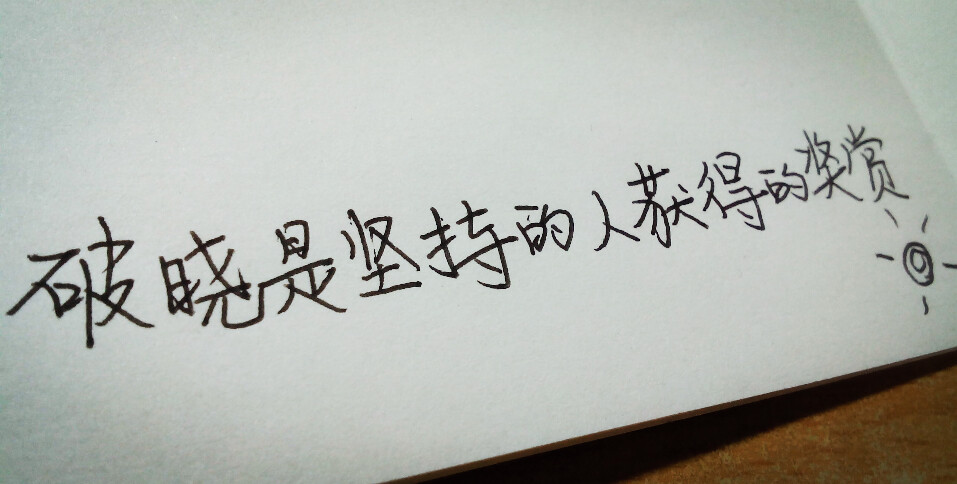 破晓是坚持的人获得的奖赏